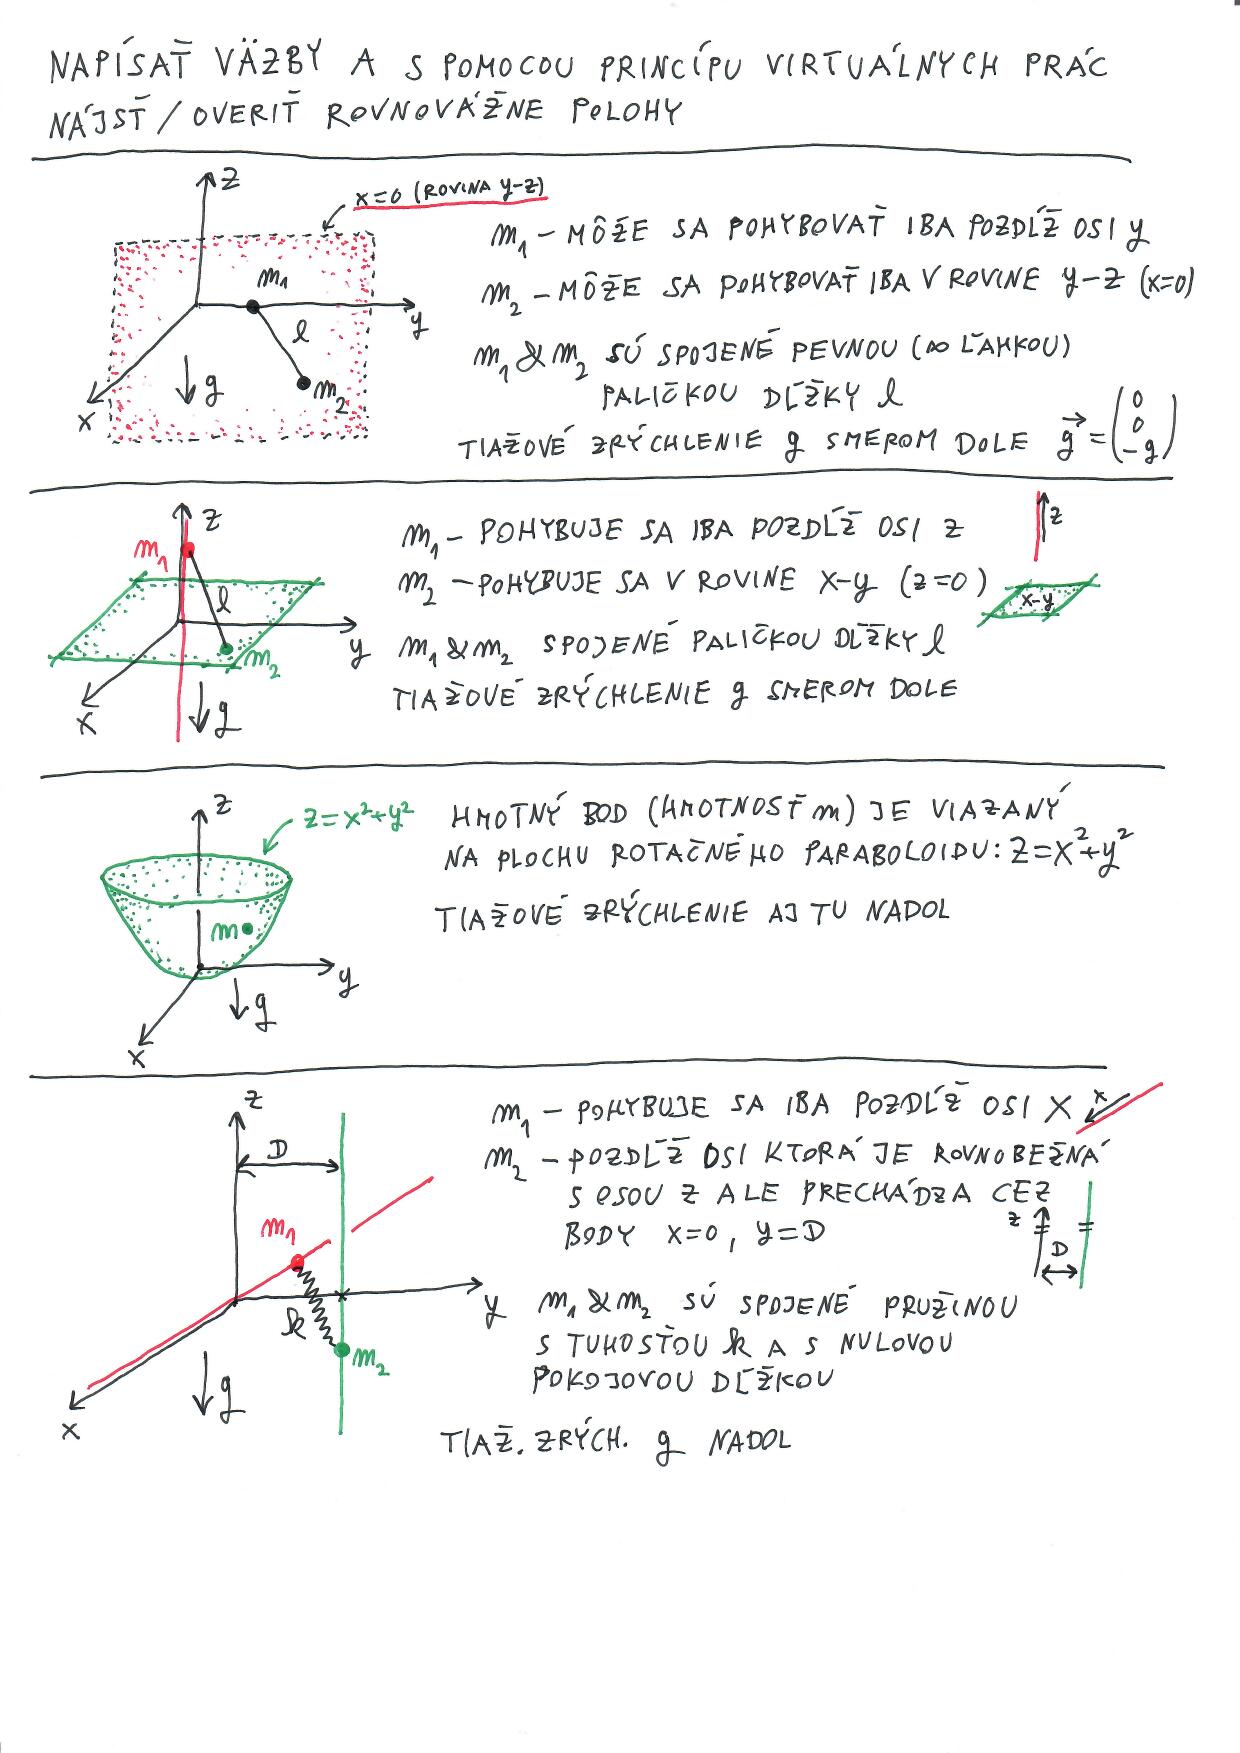 NAPÍSAŤ VÄZBY A S POMOCOU PRINCÍPU VIRTUÁLNYCH PRÁC
NÁJSŤ / OVERIŤ ROVNOVÁŽNE POLOHY
z
x=0 (ROVINA y-z)
m₁
l
y
m₂
g
x
m₁ - MÔŽE SA POHYBOVAŤ IBA POZDĹŽ OSI y
m₂ - MÔŽE SA POHYBOVAŤ IBA V ROVINE y-z (x=0)
m₁ & m₂ SÚ SPOJENÉ PEVNOU (∞ ĽAHKOU)
PALIČKOU DĹŽKY l
TIAŽOVÉ ZRÝCHLENIE g SMEROM DOLE g⃗ = (0 0 -g)
z
m₁
l
y
m₂
x
g
m₁ - POHYBUJE SA IBA POZDĹŽ OSI z
m₂ - POHYBUJE SA V ROVINE x-y (z=0)
z
x-y
m₁ & m₂ SPOJENÉ PALIČKOU DĹŽKY l
TIAŽOVÉ ZRÝCHLENIE g SMEROM DOLE
z
z=x²+y²
m
y
g
x
HMOTNÝ BOD (HMOTNOSŤ m) JE VIAZANÝ
NA PLOCHU ROTAČNÉHO PARABOLOIDU: z=x²+y²
TIAŽOVÉ ZRÝCHLENIE AJ TU NADOL
z
D
m₁
k
y
m₂
g
x
m₁ - POHYBUJE SA IBA POZDĹŽ OSI x
x
m₂ - POZDĹŽ OSI KTORÁ JE ROVNOBEŽNÁ
S OSOU z ALE PRECHÁDZA CEZ
BODY x=0, y=D
z
D
m₁ & m₂ SÚ SPOJENÉ PRUŽINOU
S TUHOSŤOU k A S NULOVOU
POKOJOVOU DĹŽKOU
TIAŽ. ZRÝCH. g NADOL